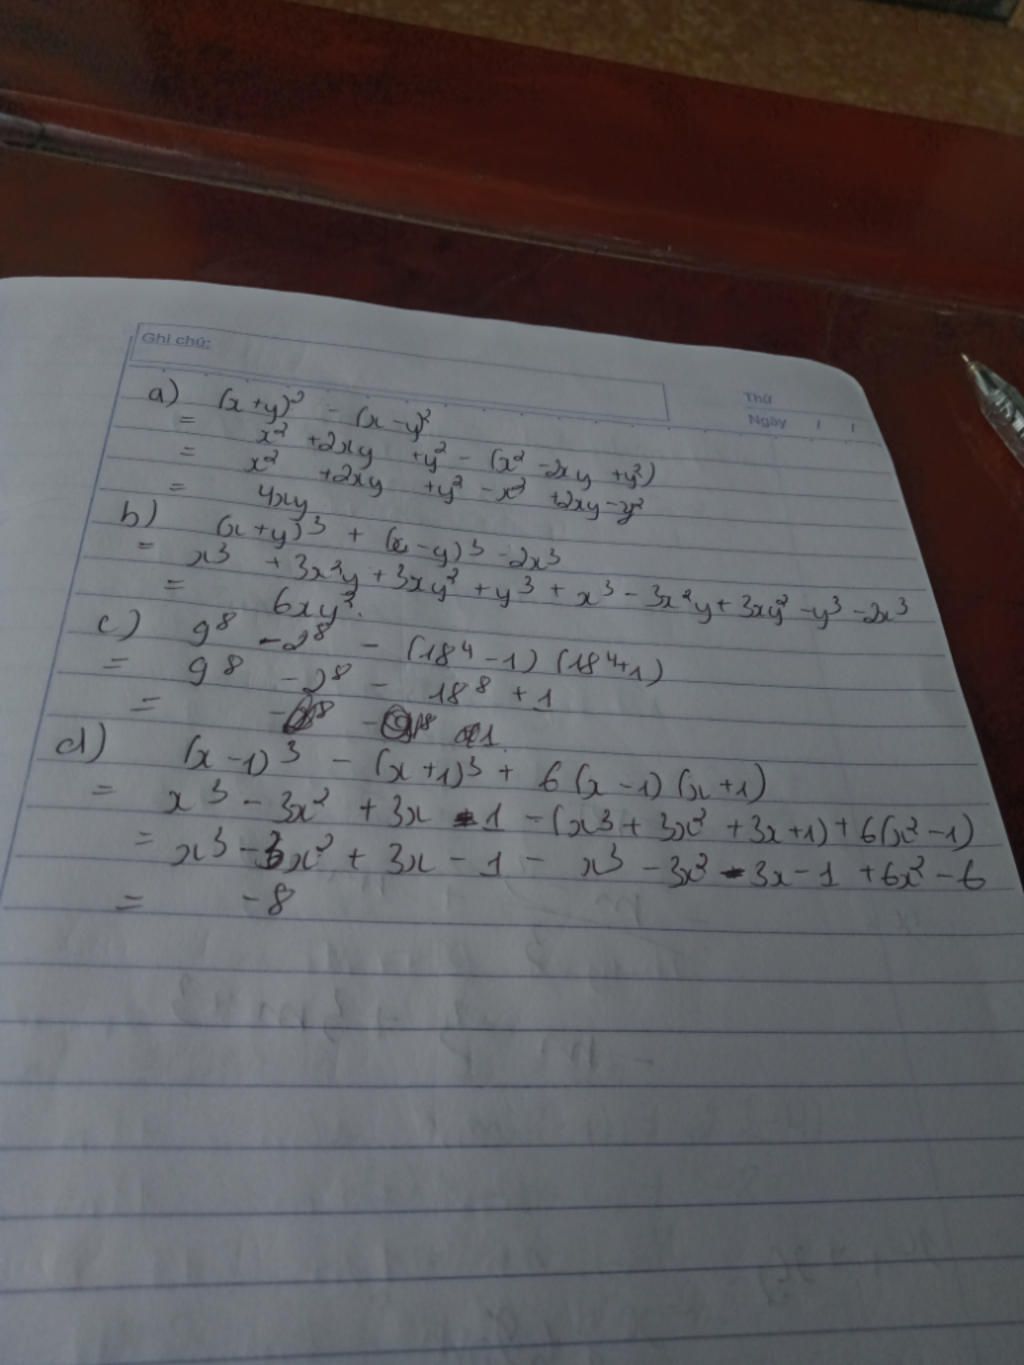 Ghi chú:
Thứ
Ngày / /
a) (x+y)² - (x-y)²
= x² +2xy +y² - (x² -2xy +y²)
= x² +2xy +y² -x² +2xy -y²
= 4xy
b) (x+y)³ + (x-y)³ -2x³
= x³ + 3x²y + 3xy² + y³ + x³ - 3x²y + 3xy² - y³ - 2x³
= 6xy².
c) 9⁸ - 2⁸ - (18⁴ -1) (18⁴+1)
= 9⁸ - 2⁸ - 18⁸ + 1
= 1
d) (x-1)³ - (x+1)³ + 6(x-1)(x+1)
= x³ - 3x² + 3x - 1 - (x³ + 3x² + 3x + 1) + 6(x² - 1)
= x³ - 3x² + 3x - 1 - x³ - 3x² - 3x - 1 + 6x² - 6
= -8